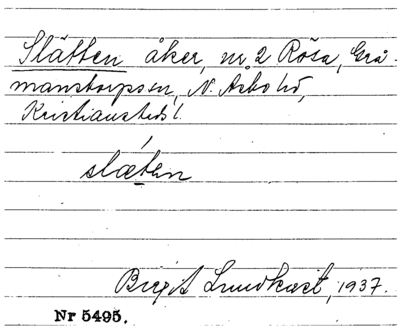 Slätten åker, nr 2 Rösa, Grå-
manstorps sn, N. Åsbo hd,
Kristianstads l.
slæten
Birgit Lundkvist, 1937.
Nr 5495.